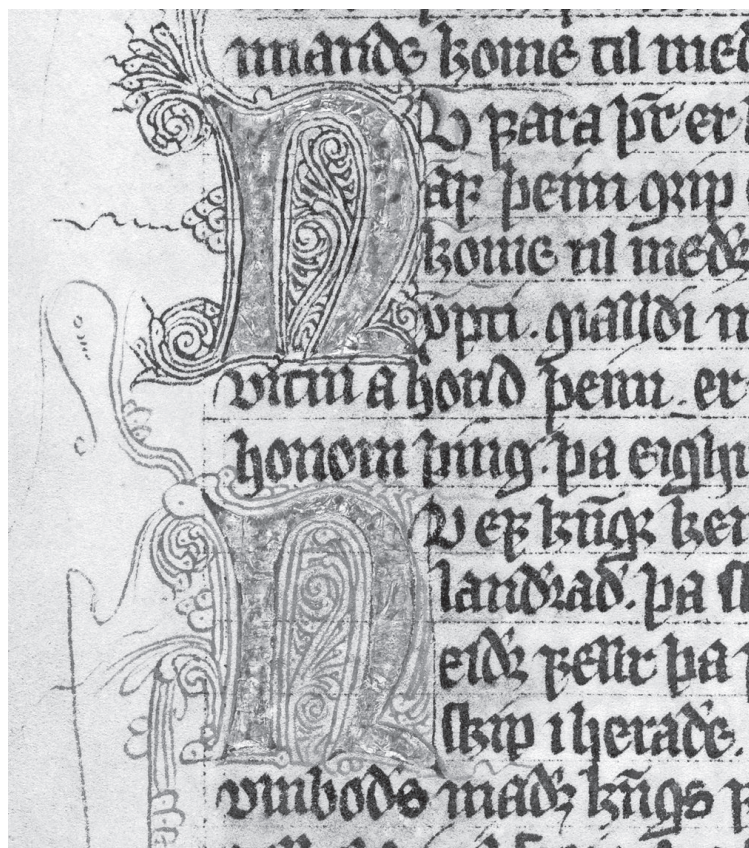 mande kome til med
NV fara þr̄ er
af þeim grip
kome til medr
gialldi
vitni a hond þeim. er
honom þing. þa eighi
NV ef kūgr ker
landrad. þa sk
eidr fellr þa
skip i herade.
vmbods madr kūgs